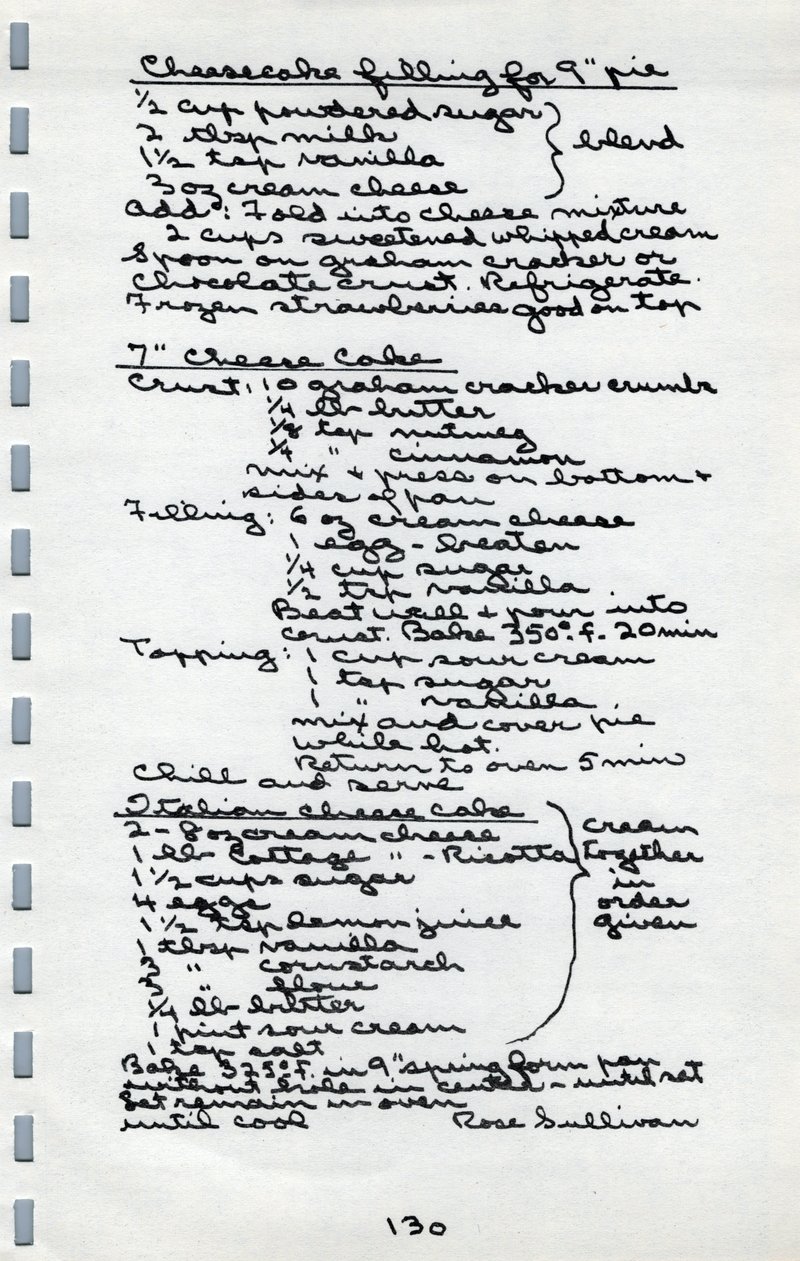 Cheesecake filling for 9" pie
1/2 cup powdered sugar
2 tbsp milk
1 1/2 tsp vanilla
3 oz cream cheese
} blend
Add: Fold into cheese mixture
2 cups sweetened whipped cream
Spoon on graham cracker or
Chocolate crust. Refrigerate.
Frozen strawberries good on top
7" Cheese Cake
Crust: 10 graham cracker crumbs
1/4 lb butter
1/8 tsp nutmeg
1/4 " cinnamon
mix + press on bottom +
sides of pan
Filling: 6 oz cream cheese
1 egg - beaten
1/4 cup sugar
1/2 tsp vanilla
Beat well + pour into
crust. Bake 350°. f. 20 min
Topping: 1 cup sour cream
1 tsp sugar
1 " vanilla.
mix and cover pie
while hot.
Return to oven 5 min
Chill and serve
Italian cheese cake
2 - 8 oz cream cheese
1 lb Cottage " - Ricotta
1 1/2 cups sugar
4 eggs
1 1/2 tsp lemon juice
1 tbsp vanilla
3 " cornstarch
3 " flour
1/4 lb butter
1 pint sour cream
1 tsp salt
} cream
together
in
order
given
Bake 325° f. in 9" spring form pan
without hole in center - until set
Let remain in oven
until cool Rose Sullivan
130